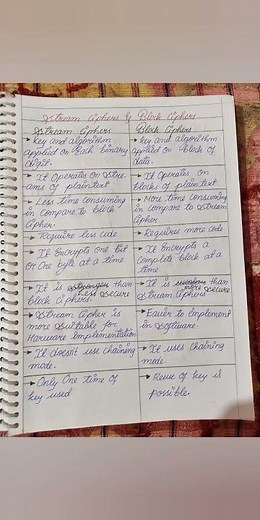 Stream Ciphers & Block Ciphers
Stream Ciphers
→ Key and algorithm
applied on each binary
digit.
→ It Operates on Stre-
ams of plaintext
→ Less time consuming
in compare to block
Cipher.
→ Require less code
→ It Encrypts one bit
or One byte at a time
→ It is than
less secure
block Ciphers.
→ Stream Cipher is
more Suitable for
Hardware implementation
→ It doesn't use chaining
mode.
→ Only One time of
key used
Block Ciphers
→ Key and algorithm
applied on block of
data.
→ It Operates on
blocks of plaintext
→ More time consuming
in compare to Stream
Cipher
→ Requires more code
→ It Encrypts a
Complete block at a
time
→ It is than
more secure
stream Ciphers
→ Easier to Implement
in Software.
→ It uses Chaining
mode
→ Reuse of key is
possible.